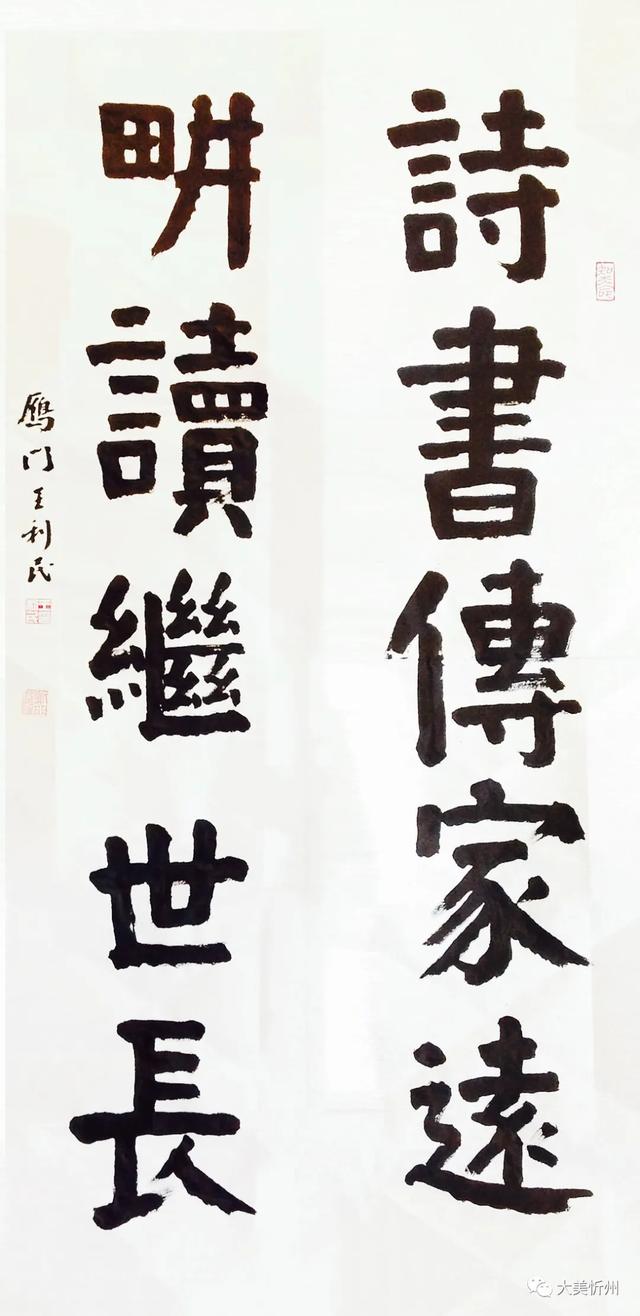 詩書傳家遠
畊讀繼世長
鴈门王利民
大美忻州